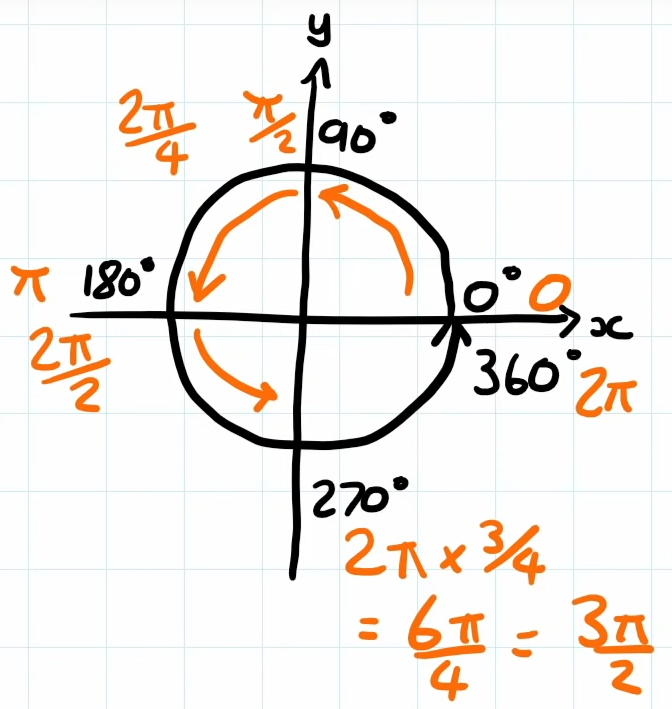 y
2π/4 π/2 90°
π 180° 0° 0
x
2π/2 360° 2π
270°
2π × 3/4
= 6π/4 = 3π/2